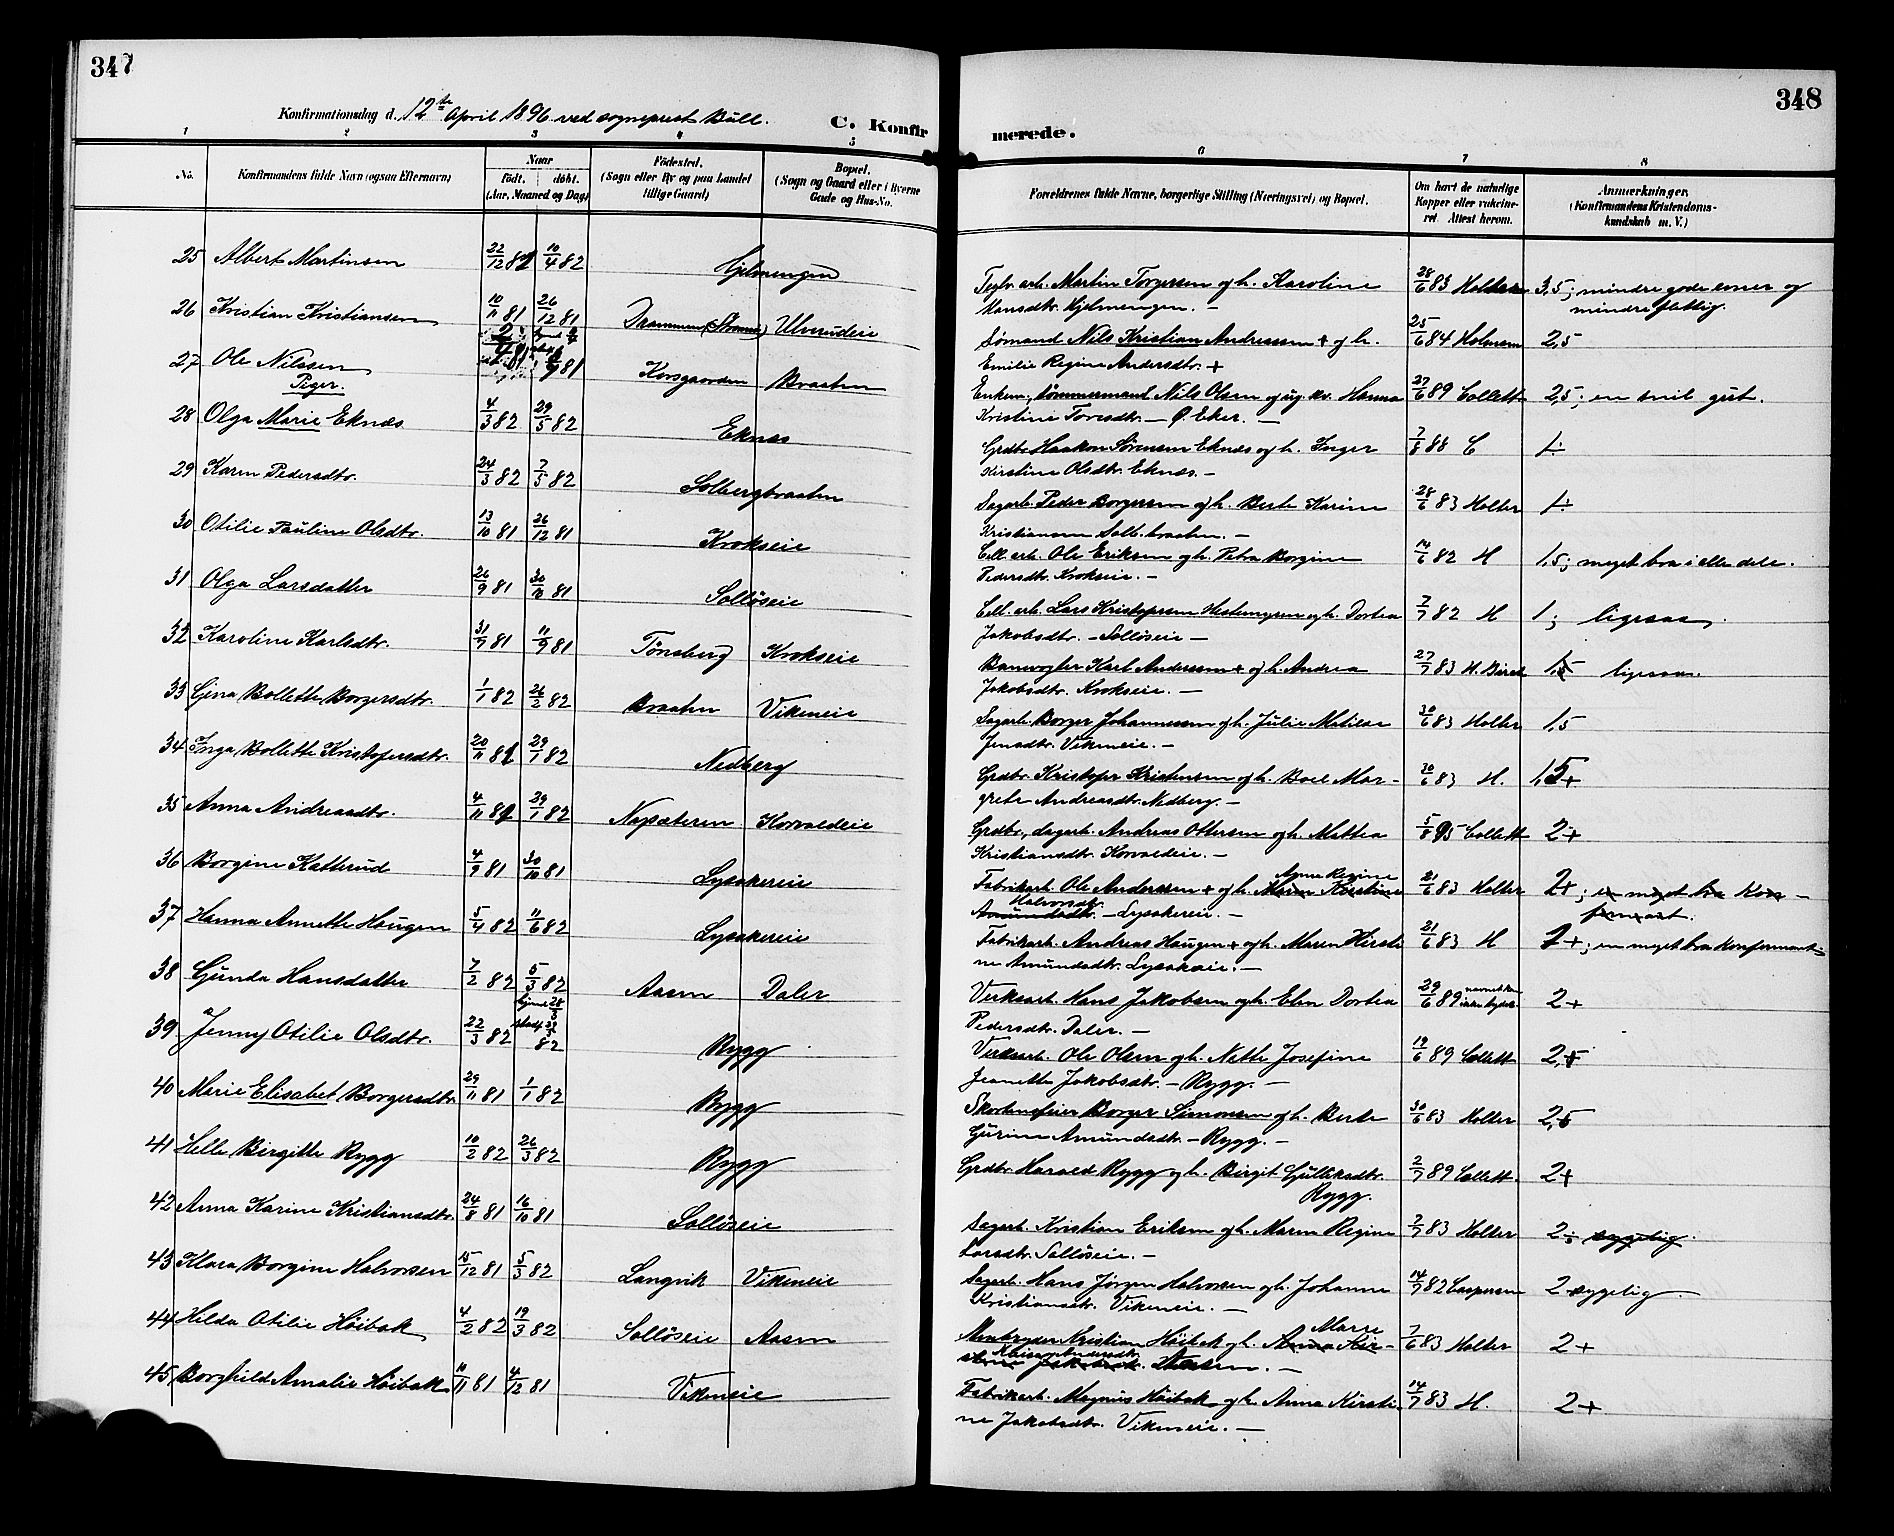 347
348
Konfirmationsdag d. 12te April 1896 ved sogneprest Bull.
C. Konfirmerede.
1 2 3 4 5 6 7 8
No.
Konfirmandens fulde Navn (ogsaa Efternavn)
Naar
født. døbt.
(Aar, Maaned og Dag)
Fødested.
(Sogn eller By og paa Landet
tillige Gaard)
Bopæl.
(Sogn og Gaard eller i Byerne
Gade og Hus-No.
Forældrenes fulde Navne, borgerlige Stilling (Næringsvei) og Bopæl.
Om havt de naturlige
Kopper eller vaccine-
ret. Attest herom.
Anmærkninger.
(Konfirmandens Kristendoms-
kundskab m. V.)
25 Albert Martinsen 22/12 81 10/4 82 Hjelmengen Teglv. arb. Martin Torgersen og h. Karoline 28/6 83 Holter 3,5; mindre gode evner og
Hansdtr. Hjelmengen. — mindre flittig.
26 Kristian Kristiansen 10/11 81 26/12 81 Drammen (Strømsø) Ulverudeie Sømand Nils Kristian Andreassen + og h. 25/6 84 Holmsen 2,5
Emilie Regine Andersdtr. +
27 Ole Nilssen 81 Korsgaarden Braaten Enkem., tømmermand Nils Olsen og ug. kv. Hanna 27/6 89 Collett 2,5; en snil gut.
Piger. Kristine Toresdtr. — Ø. Eker. —
28 Olga Marie Eknæs 4/3 82 29/5 82 Eknæs Grdbr. Haakon Sørensen Eknæs og h. Inger 7/8 88 C 1÷
Kirstine Olsdtr. Eknæs. —
29 Karen Pedersdtr. 24/3 82 7/5 82 Solbergbraaten Sagarb. Peder Borgersen og h. Berte Karine 28/6 83 Holter 1÷
Kristiansen Solb.braaten. —
30 Otilie Pauline Olsdtr. 13/10 81 26/12 81 Krokseie Cell. arb. Ole Eriksen og h. Petra Borgine 14/6 82 H 1,5; meget bra i alle dele.
Pedersdtr. Krokseie. —
31 Olga Larsdatter 26/9 81 30/10 81 Solløseie Cell. arb. Lars Kristofersen Hestengen og h. Dortea 7/7 82 H 1; ligesaa.
Jakobsdtr. — Solløseie —
32 Karoline Karlsdtr. 31/7 81 11/9 81 Tønsberg Krokseie Banevogter Karl Andersen + og h. Andrea 27/7 83 H. Bired 1,5 ligesaa.
Jakobsdtr. Krokseie. —
33 Gina Bollette Borgersdtr. 1/1 82 26/2 82 Braaten Vikeneie Sagarb. Borger Johannessen og h. Julie Matilde 30/6 83 Holter 1,5
Jensdtr. Vikeneie. —
34 Inga Bollette Kristofersdtr. 20/11 81 29/1 82 Nedberg Grdbr. Kristofer Kristensen og h. Boel Mar- 30/6 83 H. 1,5+
grete Andreasdtr. Nedberg. —
35 Anna Andreasdtr. 4/11 81 29/1 82 Napsæteren Horvoldeie Grdbr., dagarb. Andreas Ottersen og h. Mattea 5/8 95 Collett 2+
Kristiansdtr. Horvoldeie. —
36 Borgine Katterud 4/9 81 30/10 81 Lysakereie Fabrikarb. Ole Anderssen + og h. Maren Kirstine Anne Regine 21/6 83 Holter 2+; en meget bra Kon-
Amundsdtr. Halvorsdtr. — Lysakereie. — firmant.
37 Hanna Annette Haugen 5/4 82 11/6 82 Lysakereie Fabrikarb. Andreas Haugen + og h. Maren Kirsti- 21/6 83 H 2+; en meget bra Konfirmant
ne Amundsdtr. Lysakeie. —
38 Gunda Hansdatter 7/2 82 5/3 82 Aasen Daler Verksarb. Hans Jakobsen og h. Elen Dortea 29/6 89 2+
Pedersdtr. Daler. —
39 Jenny Otilie Olsdtr. 22/3 82 82 Rygg Verksarb. Ole Olsen og h. Nette Josefine 19/6 89 Collett 2,5
Jeanette Jakobsdtr. — Rygg. —
40 Marie Elisabet Borgersdtr. 29/11 81 1/1 82 Rygg Skorstensfeier Borger Simonsen og h. Berte 30/6 83 Holter 2,5
Gurine Amundsdtr. — Rygg. —
41 Helle Birgitte Rygg 10/2 82 26/3 82 Rygg Grdbr. Harald Rygg og h. Birgit Gulliksdtr. 2/7 89 Collett 2+
Rygg.
42 Anna Karine Kristiansdtr. 24/8 81 16/10 81 Solløseie Sagarb. Kristian Eriksen og h. Maren Regine 7/7 83 Holter 2; sygelig.
Larsdtr. Solløseie. —
43 Klara Borgine Halvorsen 15/12 81 5/3 82 Langvik Vikeneie Sagarb. Hans Jørgen Halvorsen og h. Johanne 14/7 82 Caspersen 2 sygelig
Kristiansdtr. Vikeneie. —
44 Hilda Otilie Høibak 4/2 82 19/3 82 Solløseie Aasen Kristian Høibak og h. Anna Kir- Marie 7/6 83 Holter 2+
stine Jakobsdtr. Aasen. —
45 Borghild Amalie Høibak 10/11 81 4/12 81 Vikeneie Fabrikarb. Magnus Høibak og h. Anna Kirsti- 14/7 83 H. 2+
ne Jakobsdtr. Vikeneie. —